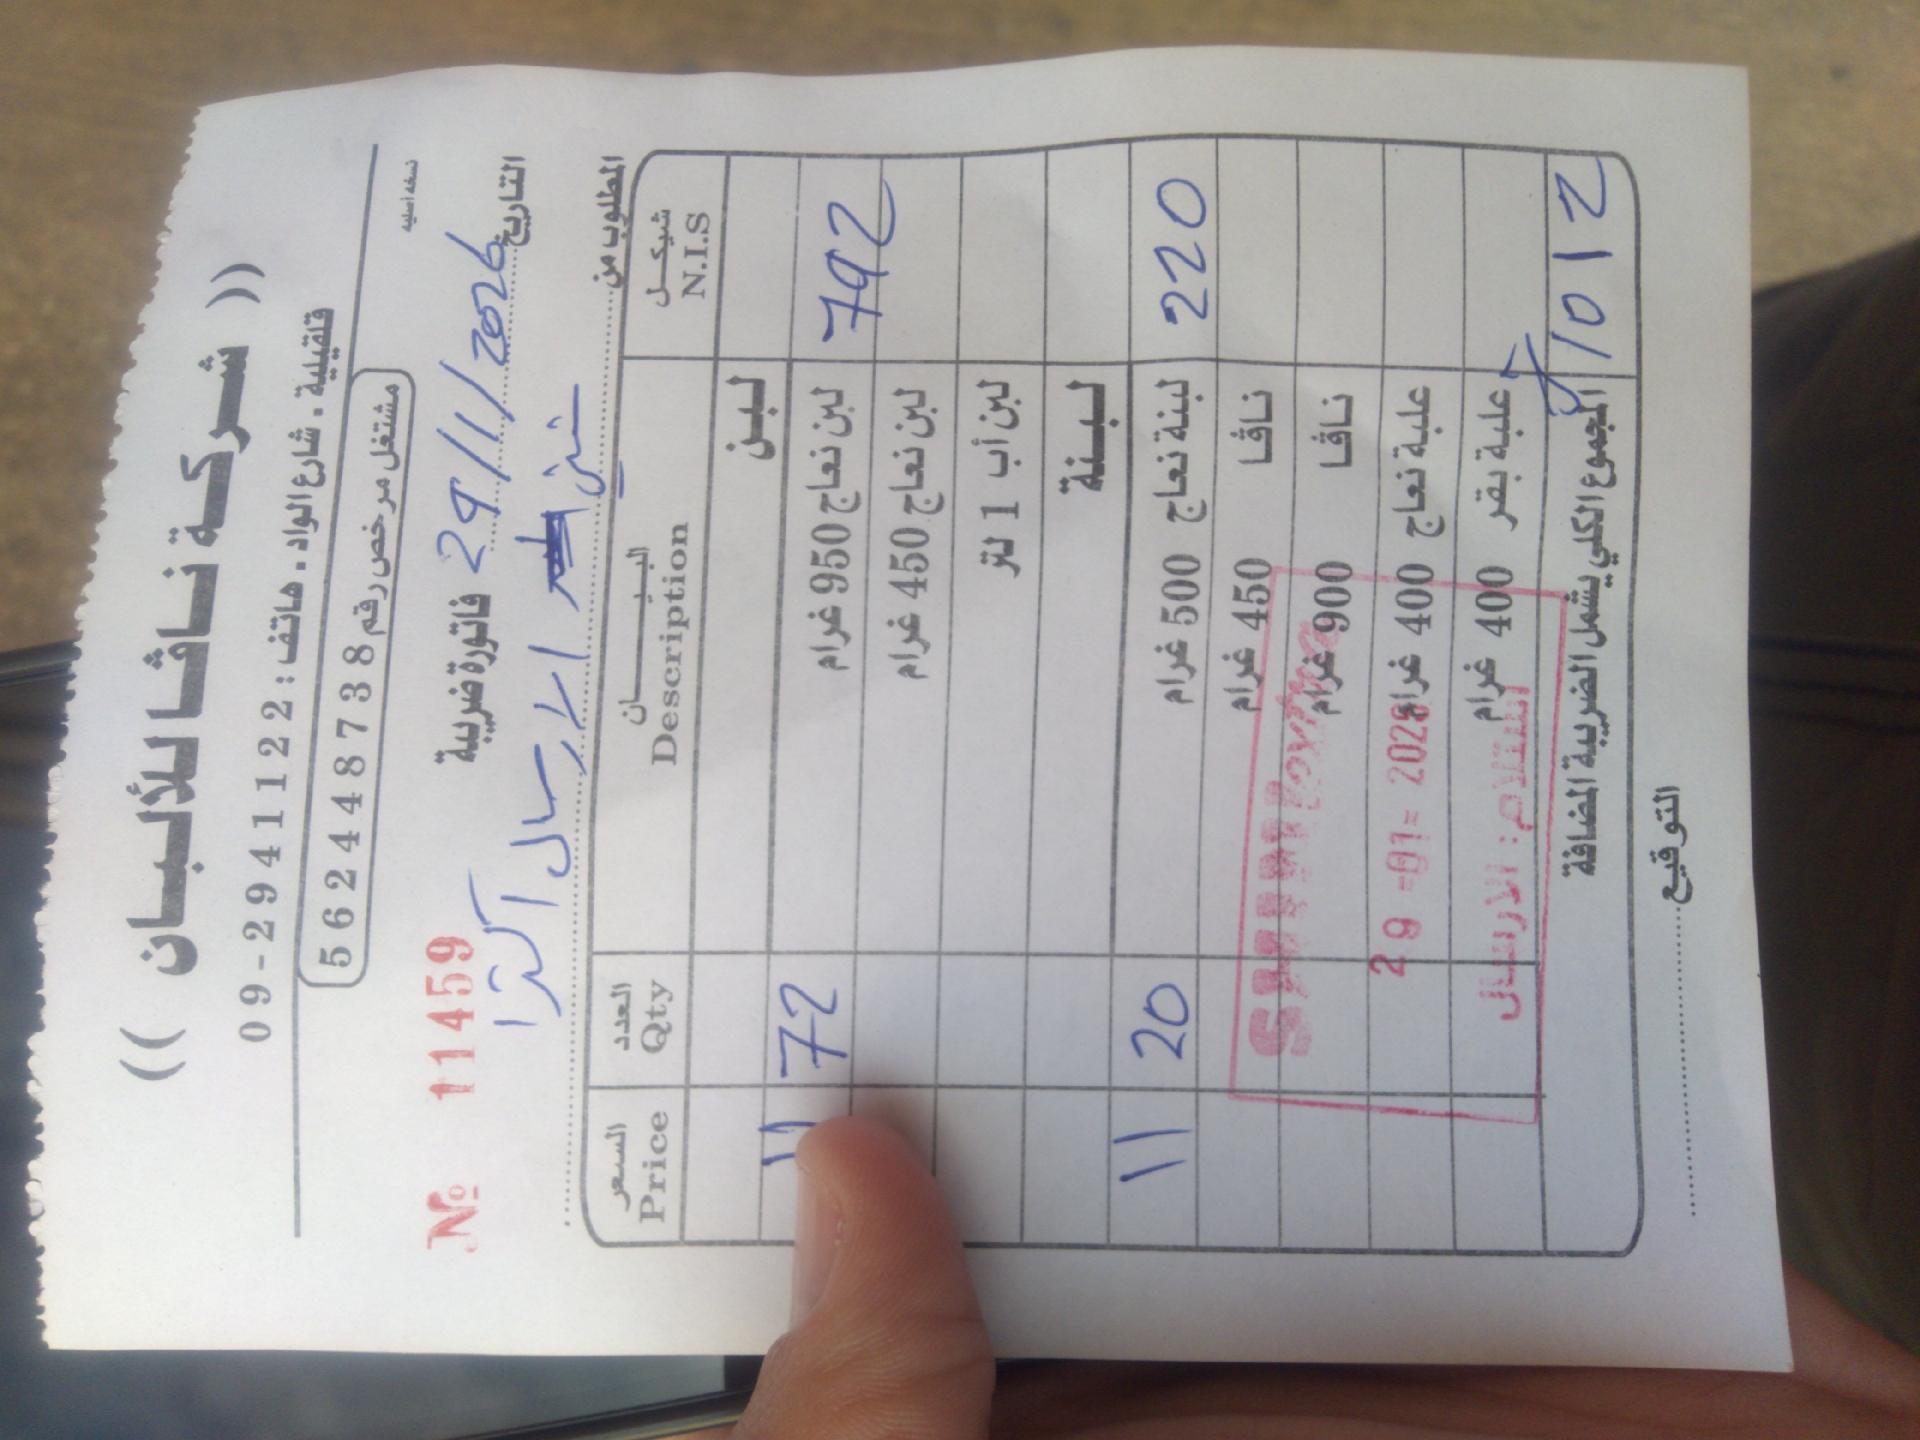 (( شركة نافا للألبان ))
قلقيلية . شارع الواد . هاتف : 09-2941122
مشتغل مرخص رقم 562448738
نسخة أصلية
№ 11459
فاتورة ضريبة
التاريخ 29/1/2026
المطلوب من
الارسال اكسترا
السعر العدد البيـــــان شيكـــل
Price Qty Description N.I.S
لبـن
11 72 لبن نعاج 950 غرام 792
لبن نعاج 450 غرام
لبن أب 1 لتر
لبـنة
11 20 لبنة نعاج 500 غرام 220
نافا 450 غرام
نافا 900 غرام
علبة نعاج 400 غرام
علبة بقر 400 غرام
المجموع الكلي يشمل الضريبة المضافة 1012
29-01-2026
استلام : الارسال
التوقيع